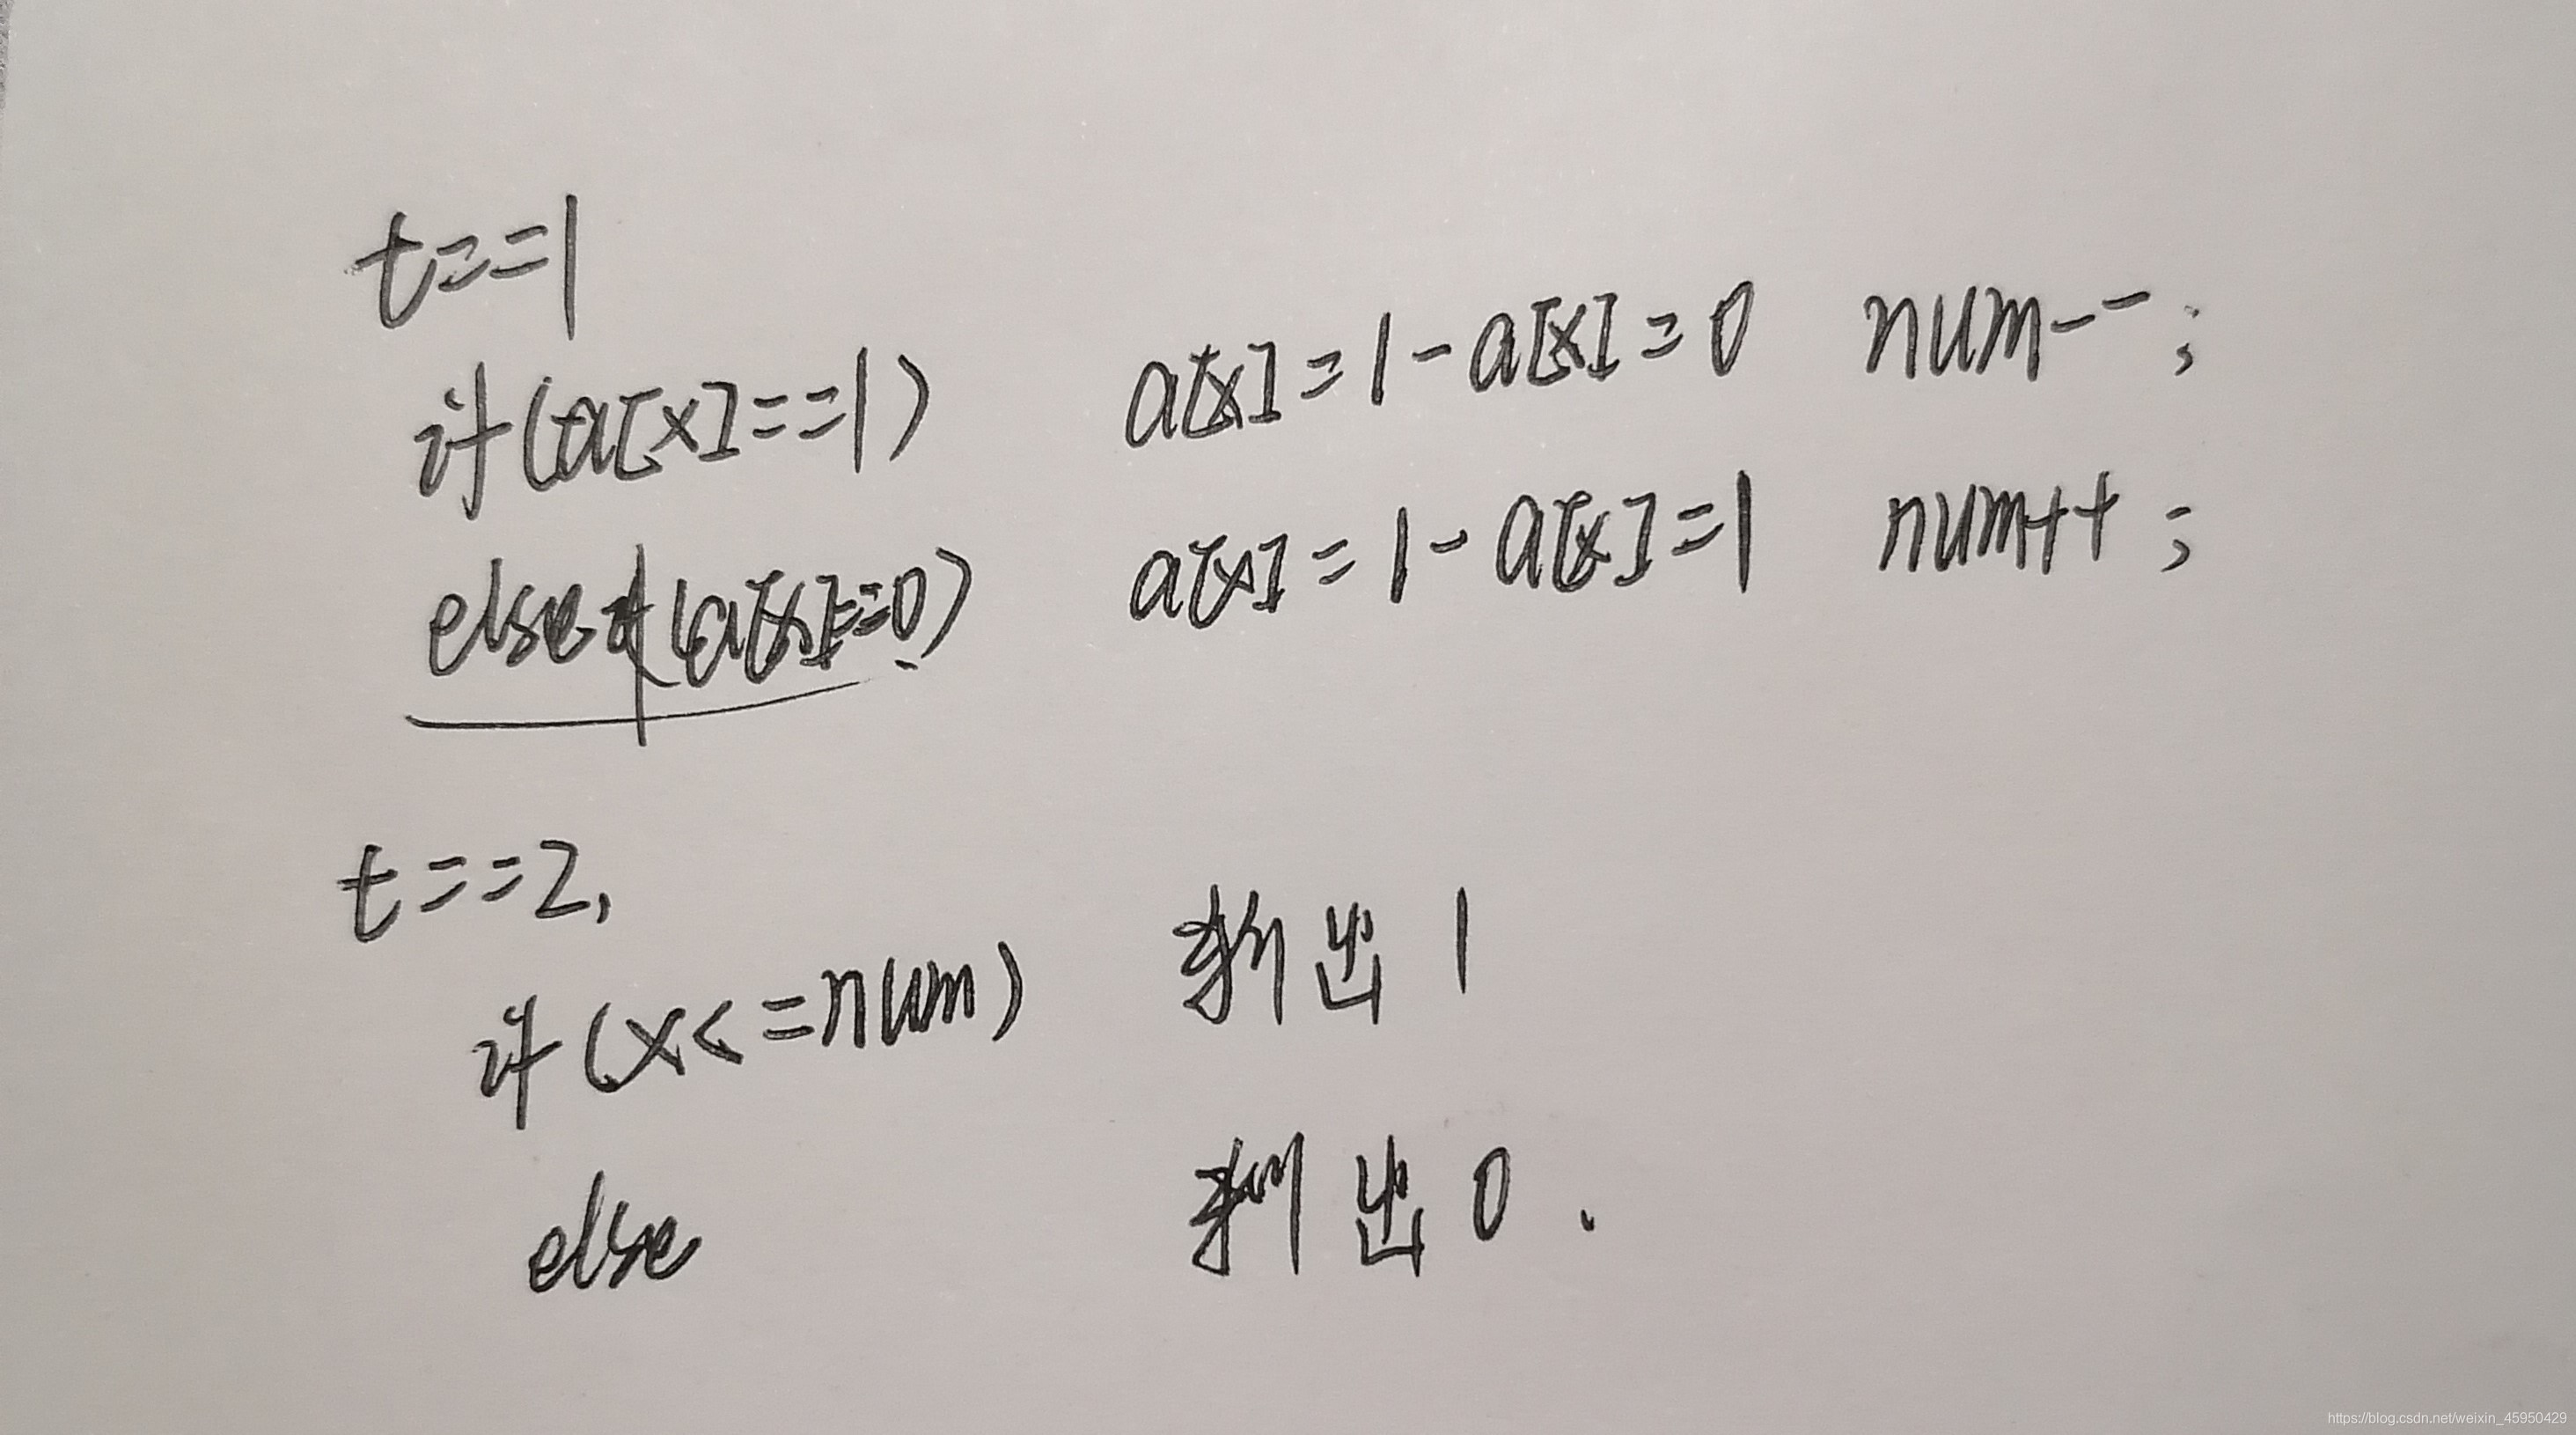 t==1
if(a[x]==1) a[x]=1-a[x]=0 num--;
else if(a[x]==0) a[x]=1-a[x]=1 num++;
t==2,
if(x<=num) 输出1
else 输出0.
https://blog.csdn.net/weixin_45950429